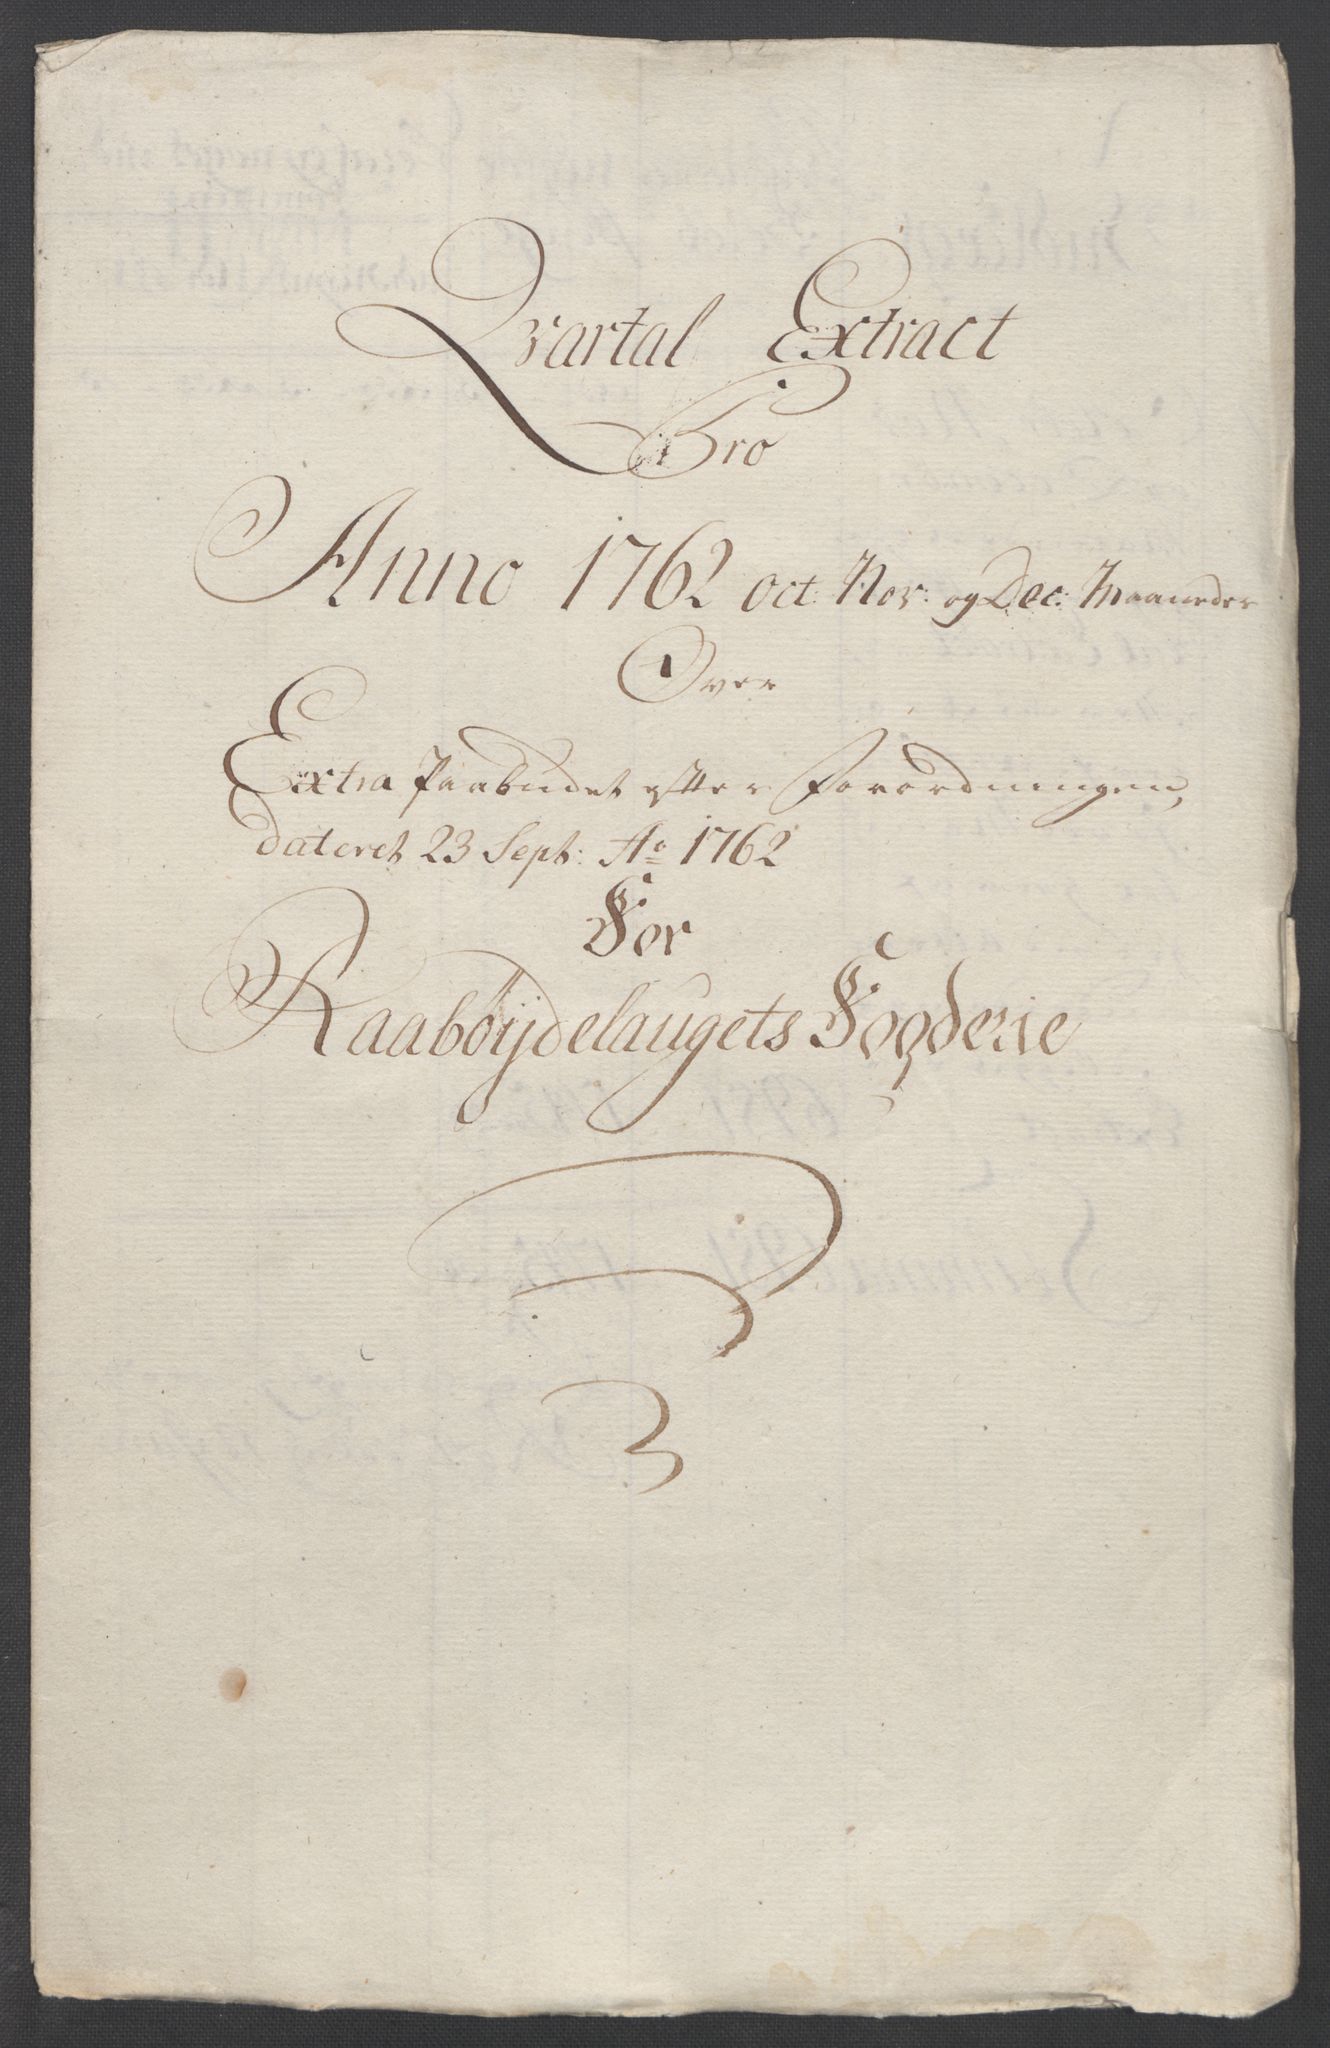 Qvartal Extract
Pro
Anno 1762 oct: Nov: og Dec: Maaneder
Over
Extra Paabudet efter Forordningen,
dateret 23 Sept: Ao 1762
For
Raabøijdelaugets Fogderie